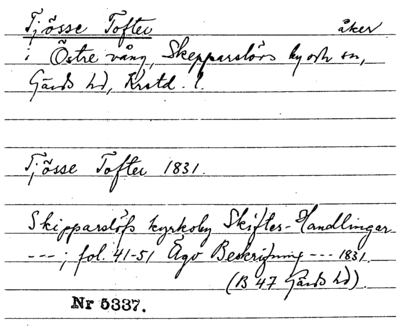 Tjösse Tofter åker
i Östre vång, Skepparslövs by och sn,
Gärds hd, Krstd. l.
Tjösse Tofter 1831.
Skipparslöfs kyrkoby Skiftes-Handlingar
---; fol. 41-51 Ägo Beskrifning --- 1831.
(B 47 Gärds hd).
Nr 5337.